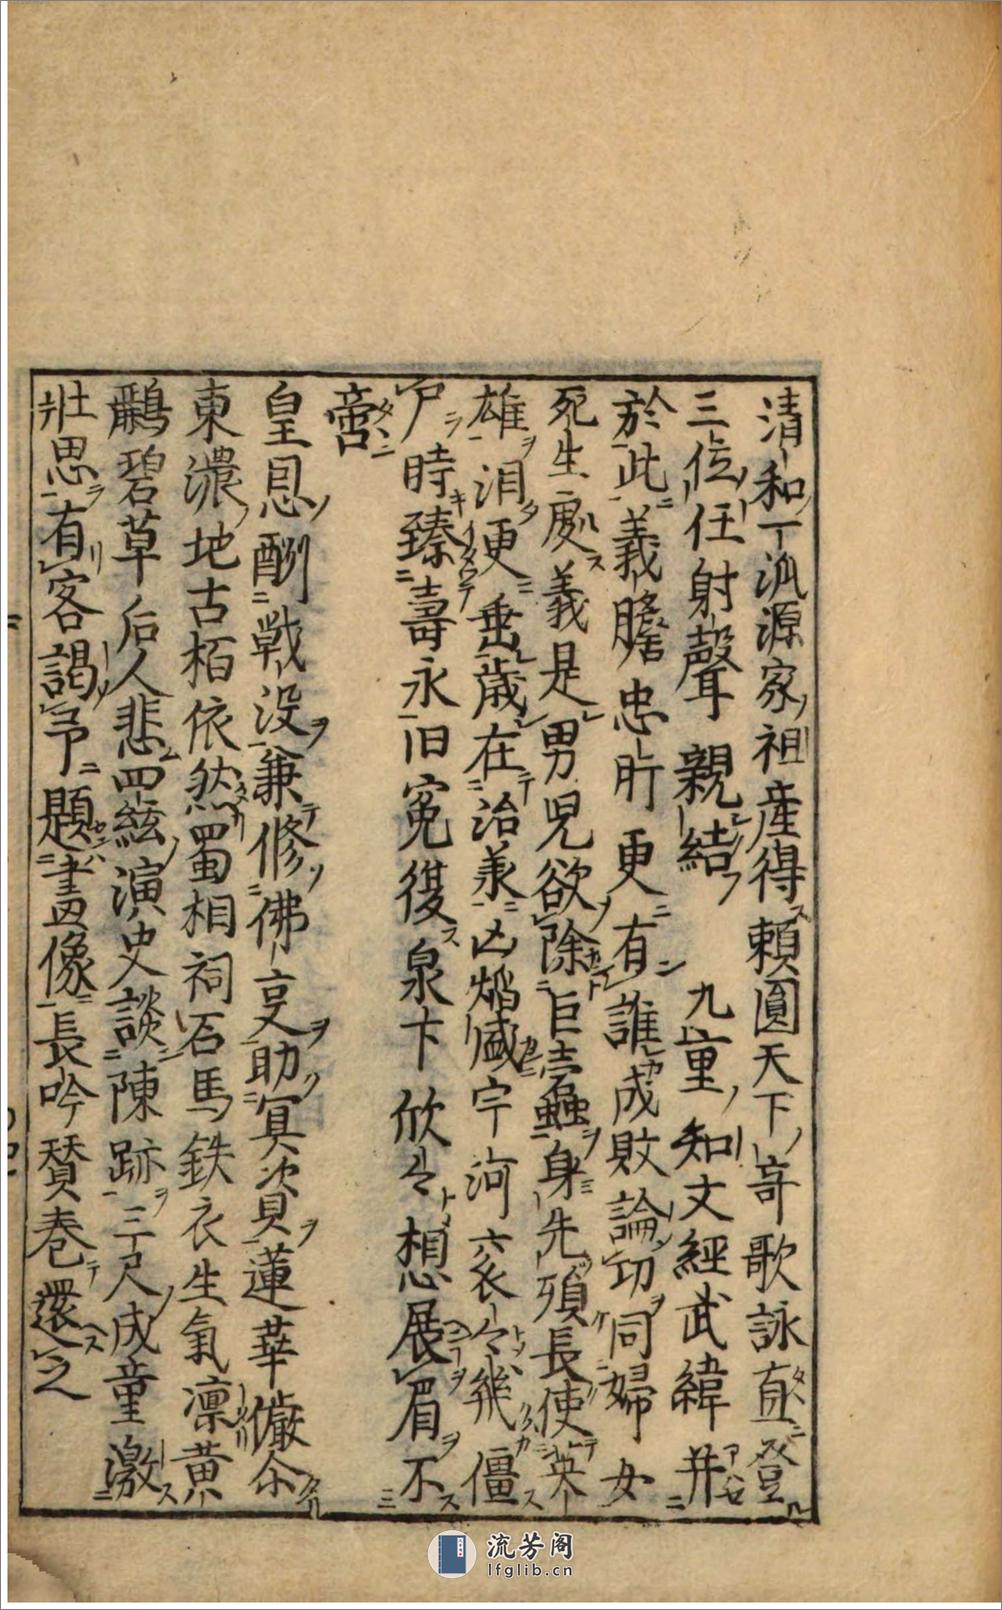 清和下流源家祖産得頼圓天下奇歌詠直登
三位任射聲親結　九重知文經武緯并
於此義膽忠肝更有誰成敗論功同婦女
死生處義是男兒欲除巨蠹蠱身先殞長使英
雄泪更垂歳在治美凶焰盛宇河衮々幾僵
尸時臻壽永旧冤復泉下欣々想展眉不
啻
皇恩酬戦没兼修佛支助冥資蓮華儼尒
東濃地古栢依然蜀相祠石馬鉄衣生氣凛黄
鸝碧草后人悲四絃演史談陳跡三尺成童激
壯思有客謁予題畫像長吟賛巻還之
流芳阁
lfglib.cn